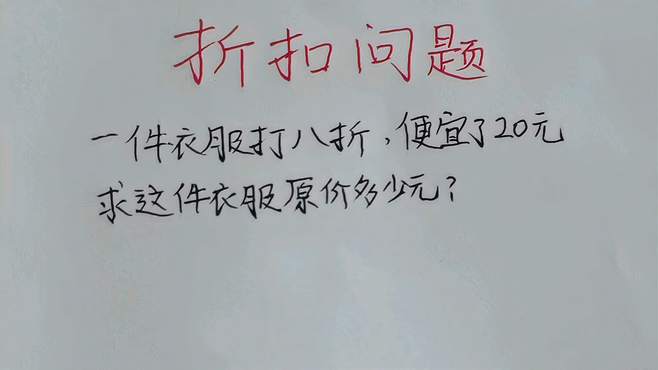 折扣问题
一件衣服打八折,便宜了20元
求这件衣服原价多少元?